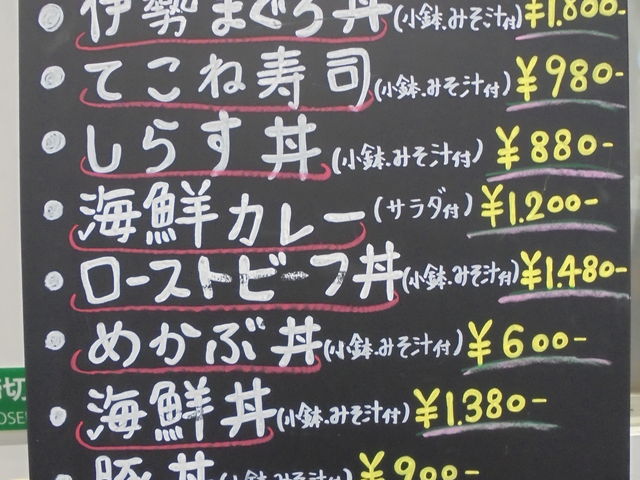 伊勢まぐろ丼(小鉢.みそ汁付)¥1.800-
てこね寿司(小鉢.みそ汁付)¥980-
しらす丼(小鉢.みそ汁付)¥880-
海鮮カレー(サラダ付)¥1.200-
ローストビーフ丼(小鉢.みそ汁付)¥1.480-
めかぶ丼(小鉢.みそ汁付)¥600-
海鮮丼(小鉢.みそ汁付)¥1.380-
豚丼(小鉢.みそ汁付)¥900-
切
OSE